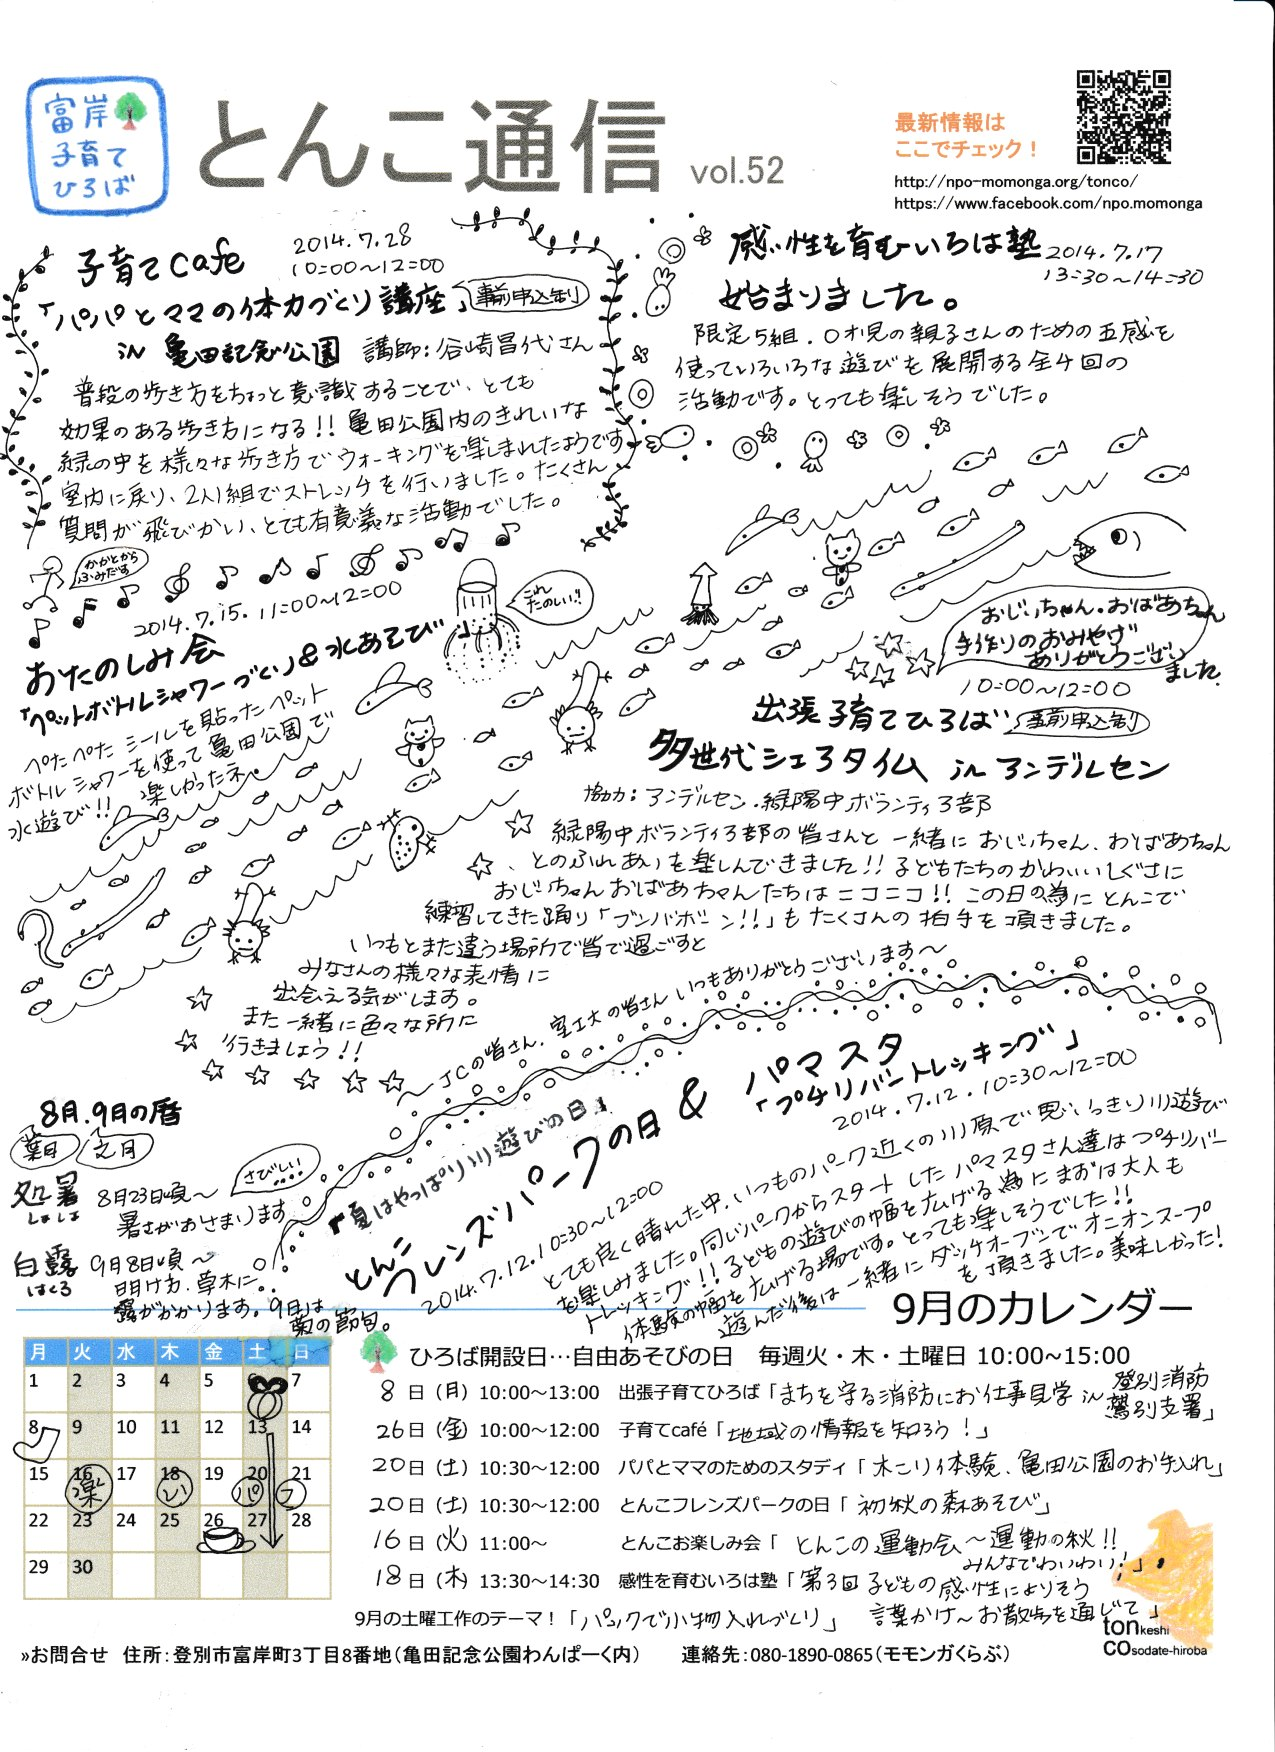 富岸
子育て
ひろば
とんこ通信 vol.52
最新情報は
ここでチェック！
http://npo-momonga.org/tonco/
https://www.facebook.com/npo.momonga
子育てcafe
2014.7.28
10:00〜12:00
「パパとママの体力づくり講座」事前申込制
in 亀田記念公園 講師：谷崎昌代さん
普段の歩き方をちょっと意識することで、とても
効果のある歩き方になる!! 亀田公園内のきれいな
緑の中を様々な歩き方でウォーキングを楽しまれたようです
室内に戻り、2人1組でストレッチを行いました。たくさん
質問が飛びかい、とても有意義な活動でした。
かかとから
ふみだす
感性を育むいろは塾
2014.7.17
13:30〜14:30
始まりました。
限定5組．0才児の親子さんのための五感を
使っていろいろな遊びを展開する全4回の
活動です。とっても楽しそうでした。
2014.7.15. 11:00〜12:00
おたのしみ会
「ペットボトルシャワーづくり＆水あそび」
これ
たのしい!!
ぺたぺた シールを貼ったペット
ボトルシャワーを使って亀田公園で
水遊び!! 楽しかったネ
おじいちゃん・おばあちゃん
手作りのおみやげ
ありがとうござい
ました.
10:00〜12:00
出張子育てひろば 事前申込制
多世代シェアタイム in アンデルセン
協力：アンデルセン．緑陽中ボランティア部
緑陽中ボランティア部の皆さんと一緒におじいちゃん、おばあちゃん
とのふれあいを楽しんできました!! 子どもたちのかわいいしぐさに
おじいちゃんおばあちゃんたちはニコニコ!! この日の為にとんこで
練習してきた踊り「ブンバボーン!!」もたくさんの拍手を頂きました。
いつもとまた違う場所で皆で過ごすと
みなさんの様々な表情に
出会える気がします。
また一緒に色々な所に
行きましょう!!
〜JCの皆さん、室工大の皆さん いつもありがとうございます〜
「夏はやっぱり川遊びの日」
とんこ
フレンズパークの日 & パマスタ
「プチリバートレッキング」
2014.7.12. 10:30〜12:00
2014.7.12. 10:30〜12:00
とても良く晴れた中、いつものパーク近くの川原で思いっきり川遊び
を楽しみました。同じパークからスタートしたパマスタさん達はプチリバー
トレッキング!! 子どもの遊びの幅を広げる為にまずは大人も
体験の幅を広げる場です。とっても楽しそうでした!!
遊んだ後は一緒にダッチオーブンでオニオンスープ
を頂きました。美味しかった!
8月.9月の暦
葉月 文月
処暑
しょしょ
8月23日頃〜
暑さがおさまります
さびしい!
....
白露
はくろ
9月8日頃〜
明け方、草木に
露がかかります。9日は
菊の節句。
9月のカレンダー
月 火 水 木 金 土 日
1 2 3 4 5 6 7
8 9 10 11 12 13 14
15 16 17 18 19 20 21
楽 い パ フ
22 23 24 25 26 27 28
29 30
ひろば開設日…自由あそびの日　毎週火・木・土曜日 10:00~15:00
8日（月）10:00〜13:00 出張子育てひろば「まちを守る消防にお仕事見学 in 登別消防
鷲別支署」
26日（金）10:00〜12:00 子育てcafé「地域の情報を知ろう！」
20日（土）10:30〜12:00 パパとママのためのスタディ「木こり体験、亀田公園のお手入れ」
20日（土）10:30〜12:00 とんこフレンズパークの日「初秋の森あそび」
16日（火）11:00〜 とんこお楽しみ会「とんこの運動会〜運動の秋!!
みんなでわいわい!」
18日（木）13:30〜14:30 感性を育むいろは塾「第3回 子どもの感性によりそう
言葉かけ〜お散歩を通じて」
9月の土曜工作のテーマ！「パックで小物入れづくり」
tonkeshi
COsodate-hiroba
»お問合せ 住所：登別市富岸町3丁目8番地（亀田記念公園わんぱーく内）　連絡先：080-1890-0865（モモンガくらぶ）